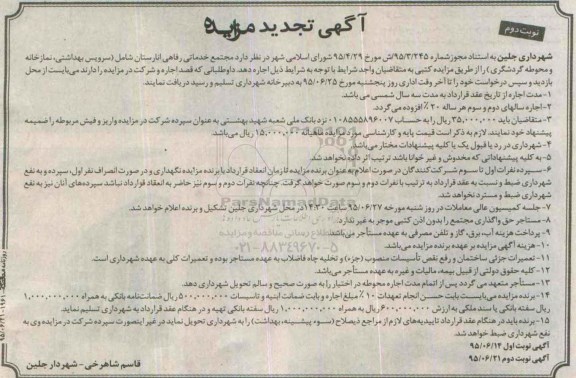 آگهی تجدید مزایده
نوبت دوم
شهرداری جلین به استناد مجوز شماره ۹۵/۳/۲۴۵/ش مورخ ۹۵/۴/۲۹ شورای اسلامی شهر در نظر دارد مجتمع خدماتی رفاهی انارستان شامل (سرویس بهداشتی، نمازخانه
و محوطه گردشگری) را از طریق مزایده کتبی به متقاضیان واجد شرایط با توجه به شرایط ذیل اجاره دهد. داوطلبانی که قصد اجاره و شرکت در مزایده را دارند می‌بایست از محل
بازدید و سپس درخواست خود را تا آخر وقت اداری روز پنجشنبه مورخ ۹۵/۰۶/۲۵ به دبیرخانه شهرداری تسلیم و رسید دریافت نمایند.
۱-مدت اجاره از تاریخ عقد قرارداد به مدت سه سال شمسی می باشد.
۲-اجاره سالهای دوم و سوم هر ساله ۲۰٪ افزوده می گردد.
۳-متقاضیان باید ۳۵,۰۰۰,۰۰۰ ریال را به حساب ۰۱۰۸۵۵۵۸۹۶۰۰۷ نزد بانک ملی شعبه شهید بهشتی به عنوان سپرده شرکت در مزایده واریز و فیش مربوطه را ضمیمه
پیشنهاد خود نمایند. لازم به ذکر است قیمت پایه و کارشناسی مورد اجاره ماهیانه ۱۵,۰۰۰,۰۰۰ ریال می باشد.
۴-شهرداری در رد یا قبول یک یا کلیه پیشنهادات مختار می باشد.
۵-به کلیه پیشنهاداتی که مخدوش و غیر خوانا باشد ترتیب اثر داده نخواهد شد.
۶-سپرده نفرات اول تا سوم شرکت کنندگان در صورت اعلام به عنوان برنده مزایده تا زمان انعقاد قرارداد با برنده مزایده نگهداری و در صورت انصراف نفر اول، سپرده وی به نفع
شهرداری ضبط و نسبت به عقد قرارداد به ترتیب با نفرات دوم و سوم صورت خواهد گرفت. چنانچه نفرات دوم و سوم نیز حاضر به انعقاد قرارداد نباشد سپرده‌های آنان نیز به نفع
شهرداری ضبط و مسترد نخواهد شد.
۷-جلسه کمیسیون عالی معاملات در روز شنبه مورخه ۹۵/۰۶/۲۷ ساعت ۱۴:۳۰ در محل شهرداری جلین تشکیل و برنده اعلام خواهد شد.
۸-مستاجر حق واگذاری مجتمع را بدون اذن کتبی موجر به غیر ندارد.
۹-پرداخت هزینه آب، برق، گاز و تلفن مصرفی به عهده مستأجر می باشد.
۱۰-هزینه آگهی مزایده بر عهده برنده مزایده می باشد.
۱۱-تعمیرات جزئی ساختمان و رفع نقص تأسیسات منصوب (جزء) و تخلیه چاه فاضلاب به عهده مستاجر بوده و تعمیرات کلی به عهده شهرداری است.
۱۲-کلیه حقوق دولتی از قبیل بیمه، مالیات و غیره به عهده مستأجر می باشد.
۱۳-مستأجر متعهد می گردد پس از اتمام مدت اجاره محوطه در اختیار را به صورت صحیح و سالم تحویل شهرداری دهد.
۱۴-برنده مزایده می بایست بابت حسن انجام تعهدات ۱۰٪ مبلغ اجاره و بابت ضمانت ابنیه و تاسیسات ۵۰۰,۰۰۰,۰۰۰ ریال ضمانت‌نامه بانکی به همراه ۱,۰۰۰,۰۰۰,۰۰۰
ریال سفته بانکی یا سند ملکی به ارزش ۶۰۰,۰۰۰,۰۰۰ ریال به همراه ۱,۰۰۰,۰۰۰,۰۰۰ ریال سفته بانکی تهیه و در هنگام عقد قرارداد به شهرداری تسلیم نماید.
۱۵-برنده باید در هنگام عقد قرارداد تاییدیه‌های لازم از مراجع ذیصلاح (سوء پیشینه، بهداشت) را به شهرداری تحویل نماید در غیر اینصورت سپرده شرکت در مزایده وی به
نفع شهرداری ضبط خواهد شد.
آگهی نوبت اول ۹۵/۰۶/۱۴
آگهی نوبت دوم ۹۵/۰۶/۲۱
قاسم شاهرخی - شهردار جلین
ParsNamadData
۰۲۱-۸۸۳۴۹۶۷۰-۵